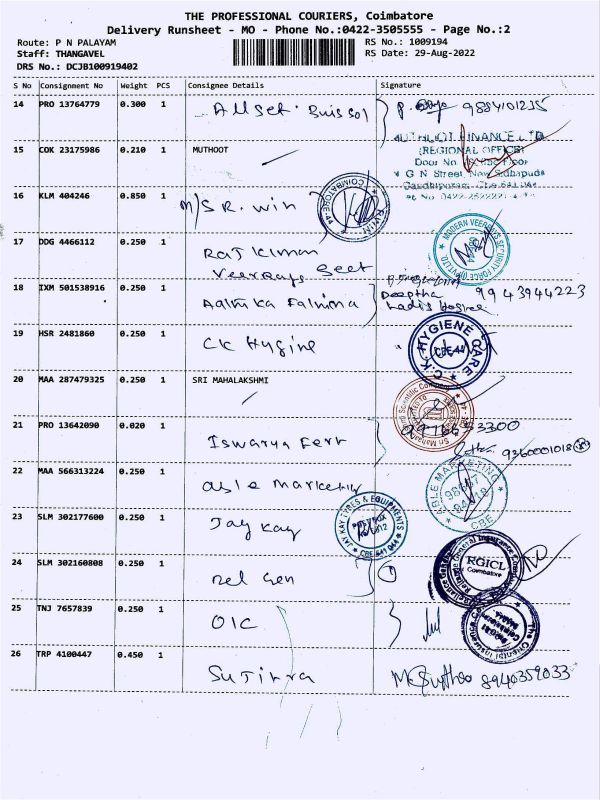 THE PROFESSIONAL COURIERS, Coimbatore
Delivery Runsheet - MO - Phone No.:0422-3505555 - Page No.:2
Route: P N PALAYAM
RS No.: 1009194
Staff: THANGAVEL
RS Date: 29-Aug-2022
DRS No.: DCJB100919402
S No Consignment No Weight PCS Consignee Details Signature
14 PRO 13764779 0.300 1
9884101235
MUTHOOT FINANCE LTD
15 COK 23175986 0.210 1 MUTHOOT
(REGIONAL OFFICE)
Door No
G N Street, New Sidhapudu
16 KLM 404246 0.850 1 M/S R. win
COIMBATORE-44
17 DDG 4466112 0.250 1 Raj Kumar
MODERN VEERRAYS SECURITY FORCE (I) PVT LTD.
Veerrays Seet
18 IXM 501538916 0.250 1 Fathima
Deeptha 9943944223
Ladis Hostel
19 HSR 2481860 0.250 1 CK Hygine
C.K. HYGIENE CARE
CBE-44
20 MAA 287479325 0.250 1 SRI MAHALAKSHMI
Scientific Company
21 PRO 13642090 0.020 1 Iswarya Fert
9360001018
22 MAA 566313224 0.250 1 able marketing
ABLE MARKETING
CBE
23 SLM 302177600 0.250 1 Jay Kay
JAY KAY TYRES & EQUIPMENTS
CBE 641 044
24 SLM 302160808 0.250 1 Rel Gen
Reliance General Insurance Company
RGICL
Coimbatore
25 TNJ 7657839 0.250 1 OIC
The Oriental Insurance Co
26 TRP 4100447 0.450 1 Sujithra
8940359033